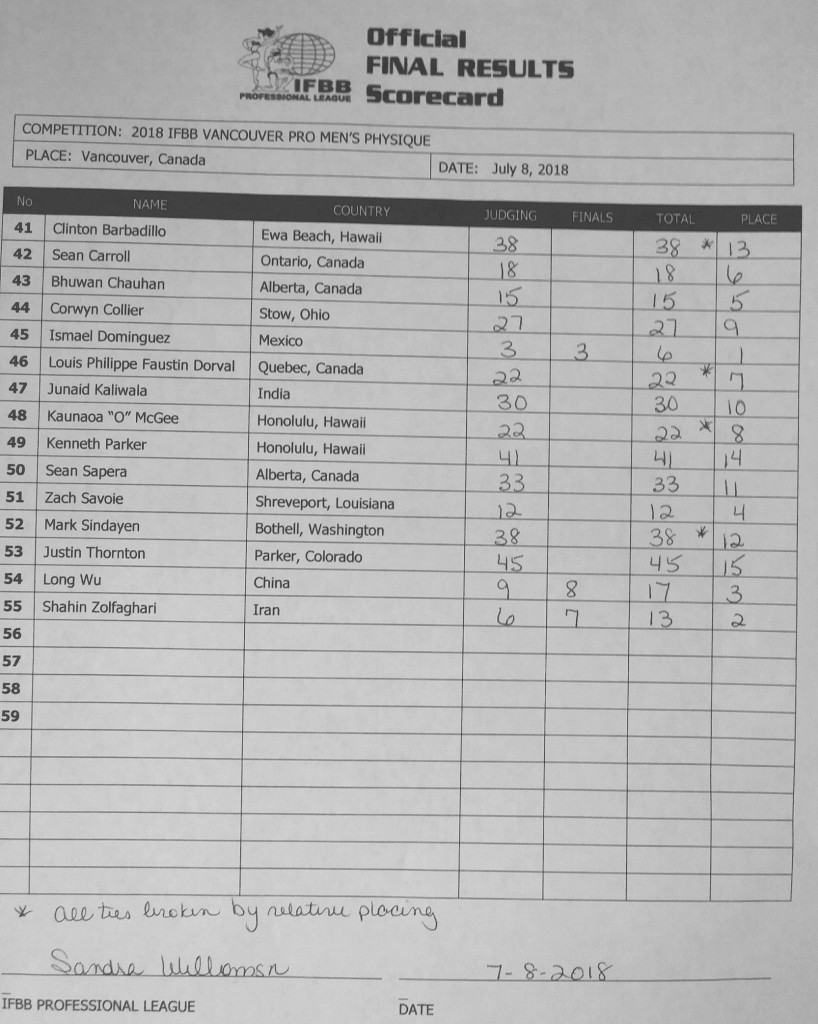 Official
FINAL RESULTS
Scorecard
IFBB
PROFESSIONAL LEAGUE
COMPETITION: 2018 IFBB VANCOUVER PRO MEN'S PHYSIQUE
PLACE: Vancouver, Canada DATE: July 8, 2018
No NAME COUNTRY JUDGING FINALS TOTAL PLACE
41 Clinton Barbadillo Ewa Beach, Hawaii 38 38 * 13
42 Sean Carroll Ontario, Canada 18 18 6
43 Bhuwan Chauhan Alberta, Canada 15 15 5
44 Corwyn Collier Stow, Ohio 27 27 9
45 Ismael Dominguez Mexico 3 3 6 1
46 Louis Philippe Faustin Dorval Quebec, Canada 22 22 * 7
47 Junaid Kaliwala India 30 30 10
48 Kaunaoa "O" McGee Honolulu, Hawaii 22 22 * 8
49 Kenneth Parker Honolulu, Hawaii 41 41 14
50 Sean Sapera Alberta, Canada 33 33 11
51 Zach Savoie Shreveport, Louisiana 12 12 4
52 Mark Sindayen Bothell, Washington 38 38 * 12
53 Justin Thornton Parker, Colorado 45 45 15
54 Long Wu China 9 8 17 3
55 Shahin Zolfaghari Iran 6 7 13 2
56
57
58
59
* all ties broken by relative placing
Sandra Williamson 7-8-2018
IFBB PROFESSIONAL LEAGUE DATE